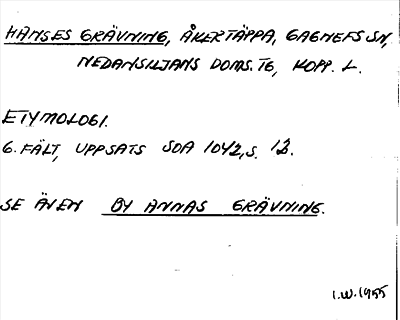 HANSES GRÄVNING, ÅKERTÄPPA, GAGNEFS SN,
NEDANSILJANS DOMS. TG, KOPP. L.
ETYMOLOGI.
G. FÄLT, UPPSATS SOA 1042, S. 12.
SE ÄVEN BY ANNAS GRÄVNING.
I.W. 1955